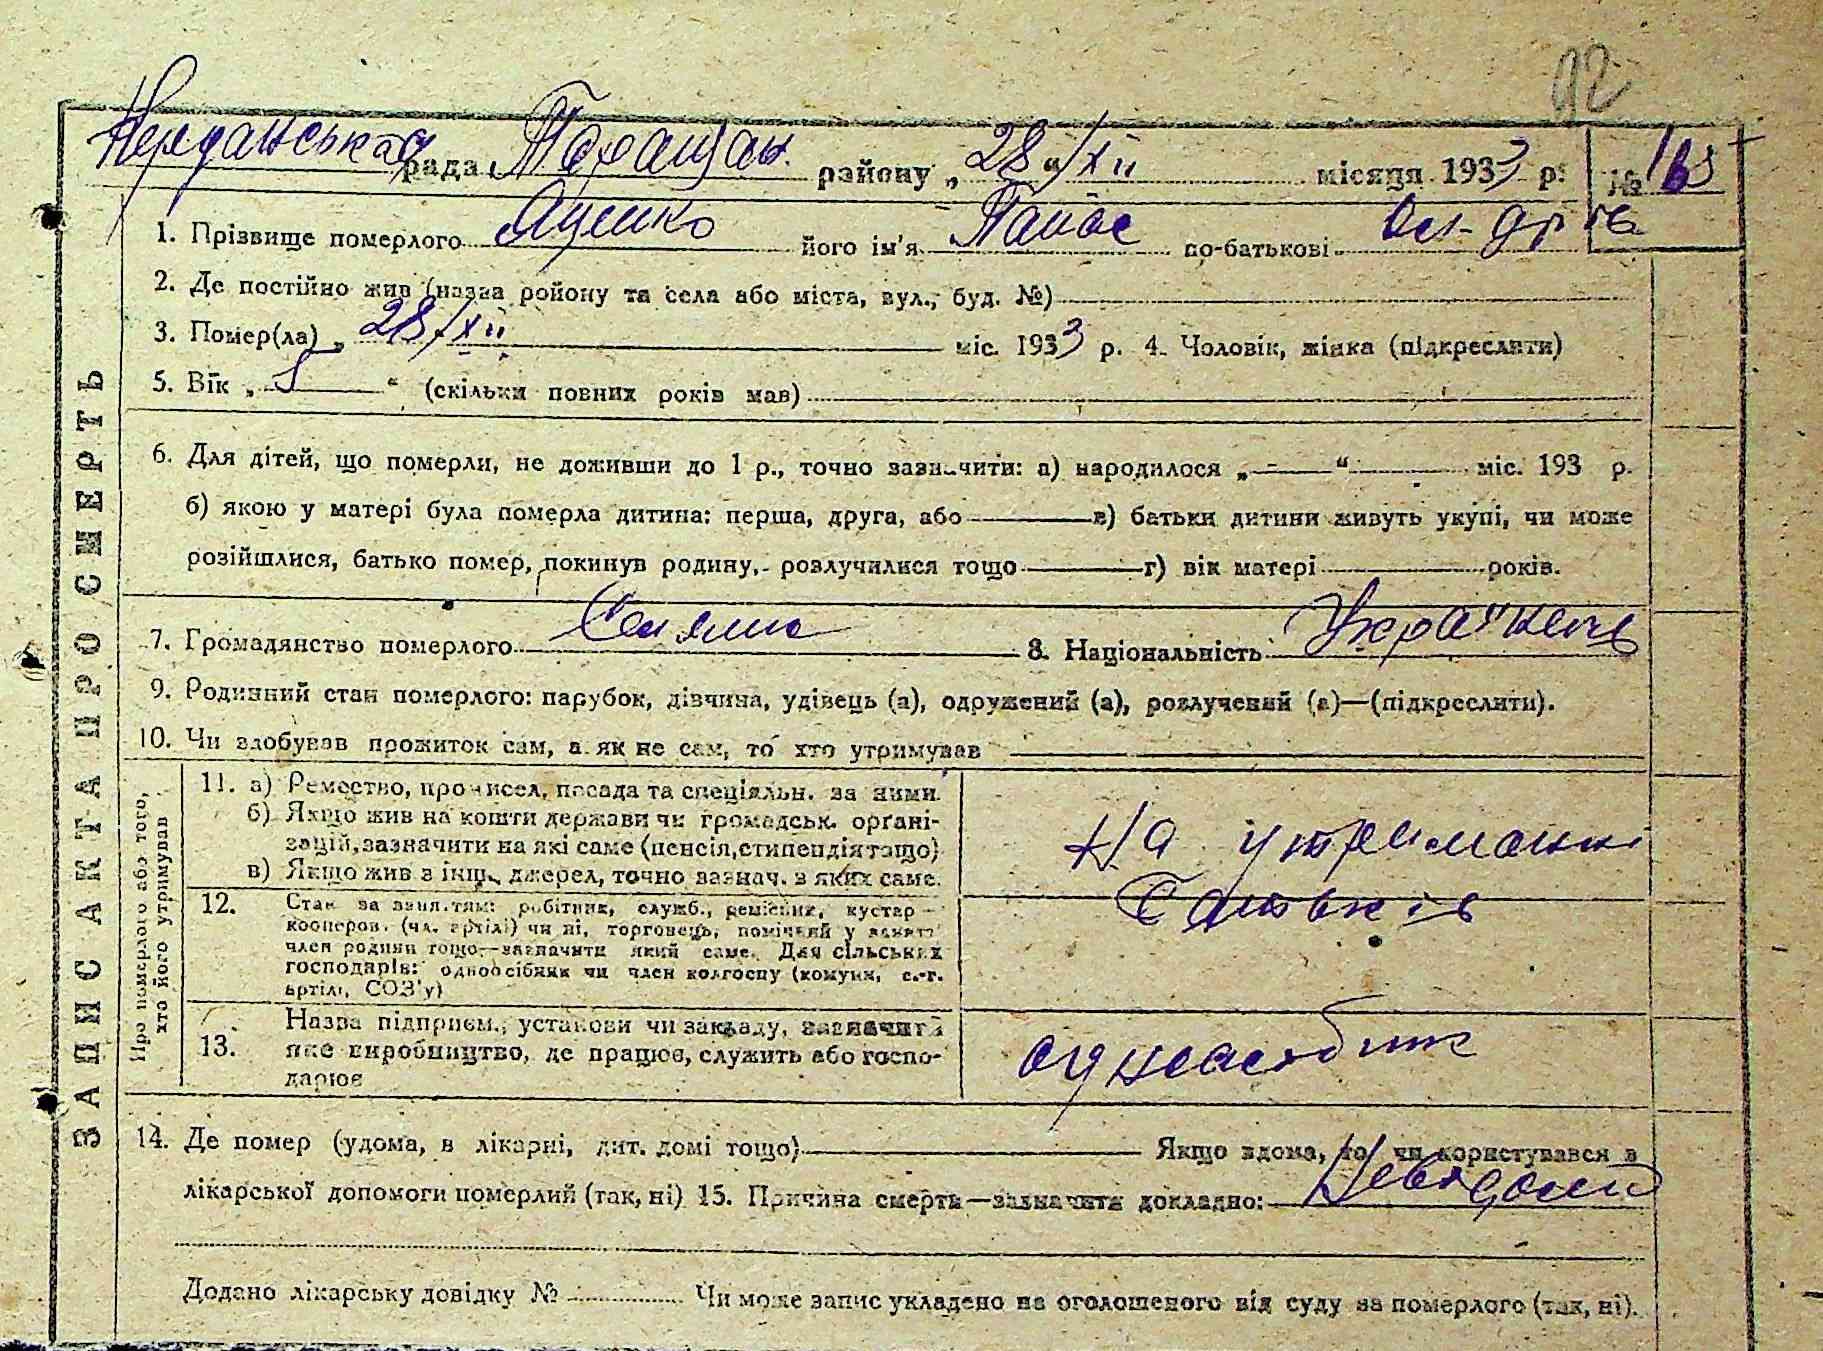 92
рада Таращан. району „28“/XII місяця 1933 р. № 165
1. Прізвище померлого Яценко його ім'я Панас по-батькові
2. Де постійно жив (назва району та села або міста, вул., буд. №)
3. Помер(ла) „28/XII міс. 1933 р. 4. Чоловік, жінка (підкреслити)
5. Вік „ “ (скільки повних років мав)
6. Для дітей, що померли, не доживши до 1 р., точно зазначити: а) народилося „ - “ міс. 193 р.
б) якою у матері була померла дитина: перша, друга, або в) батьки дитини живуть укупі, чи може
розійшлися, батько помер, покинув родину, розлучилися тощо г) вік матері років.
7. Громадянство померлого Селянин 8. Національність Українець
9. Родинний стан померлого: парубок, дівчина, удівець (а), одружений (а), розлучений (а)—(підкреслити).
10. Чи здобував прожиток сам, а як не сам, то хто утримував
ЗАПИС АКТА ПРО СМЕРТЬ
Про померлого або того, хто його утримував
11. а) Ремество, промисел, посада та спеціяльн. за ними.
б) Якщо жив на кошти держави чи громадськ. органі-
зацій, зазначити на які саме (пенсія, стипендія тощо)
в) Якщо жив з інш. джерел, точно зазнач. з яких саме.
На утриманні
батьків
12. Стан за заняттям: робітник, служб., ремісник, кустар—
кооперов. (чл. артілі) чи ні, торговець, помічний у занятті
член родини тощо—зазначити який саме. Для сільських
господарів: одноосібник чи член колгоспу (комуни, с.-г.
артілі, СОЗ'у)
13. Назва підприєм., установи чи закладу, зазначити
яке виробництво, де працює, служить або госпо-
дарює
одноосібник
14. Де помер (удома, в лікарні, дит. домі тощо) Якщо вдома, то чи користувався з
лікарської допомоги померлий (так, ні) 15. Причина смерти—зазначити докладно: Невідомо
Додано лікарську довідку № Чи може запис укладено на оголошеного від суду за померлого (так, ні).